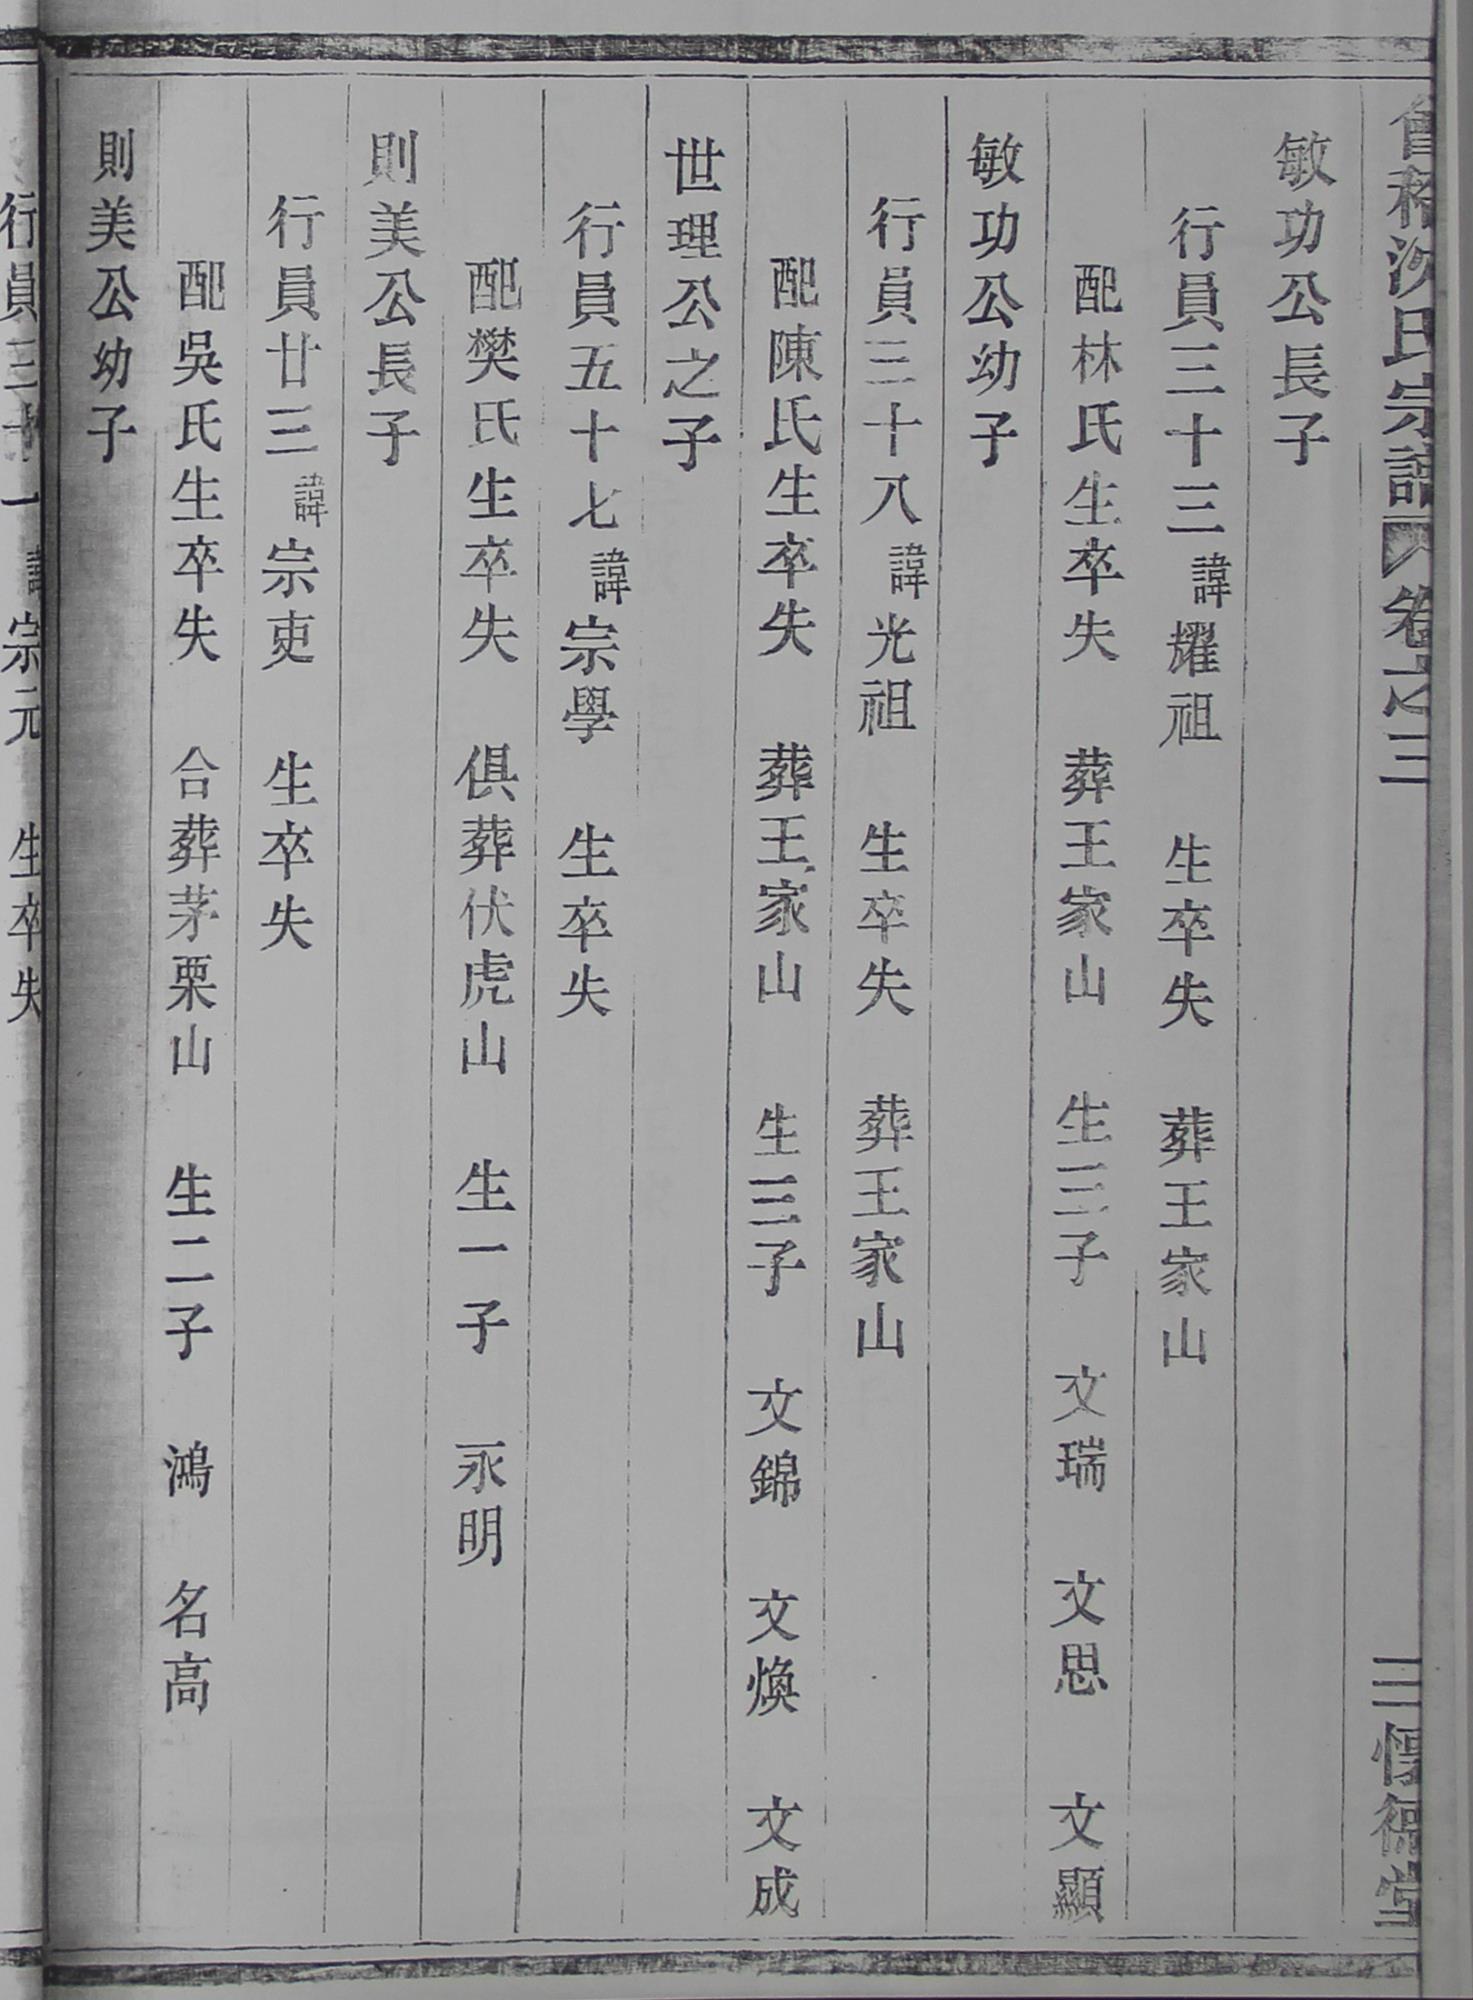 會稽沈氏宗譜 卷之三 二 惇德堂
敏功公長子
行員三十三諱耀祖 生卒失 葬王家山
配林氏生卒失 葬王家山 生三子 文瑞 文思 文顯
敏功公幼子
行員三十八諱光祖 生卒失 葬王家山
配陳氏生卒失 葬王家山 生三子 文錦 文煥 文成
世理公之子
行員五十七諱宗學 生卒失
配樊氏生卒失 俱葬伏虎山 生一子 永明
則美公長子
行員廿三諱宗吏 生卒失
配吳氏生卒失 合葬茅栗山 生二子 鴻 名高
則美公幼子
行員三十一諱宗元 生卒失